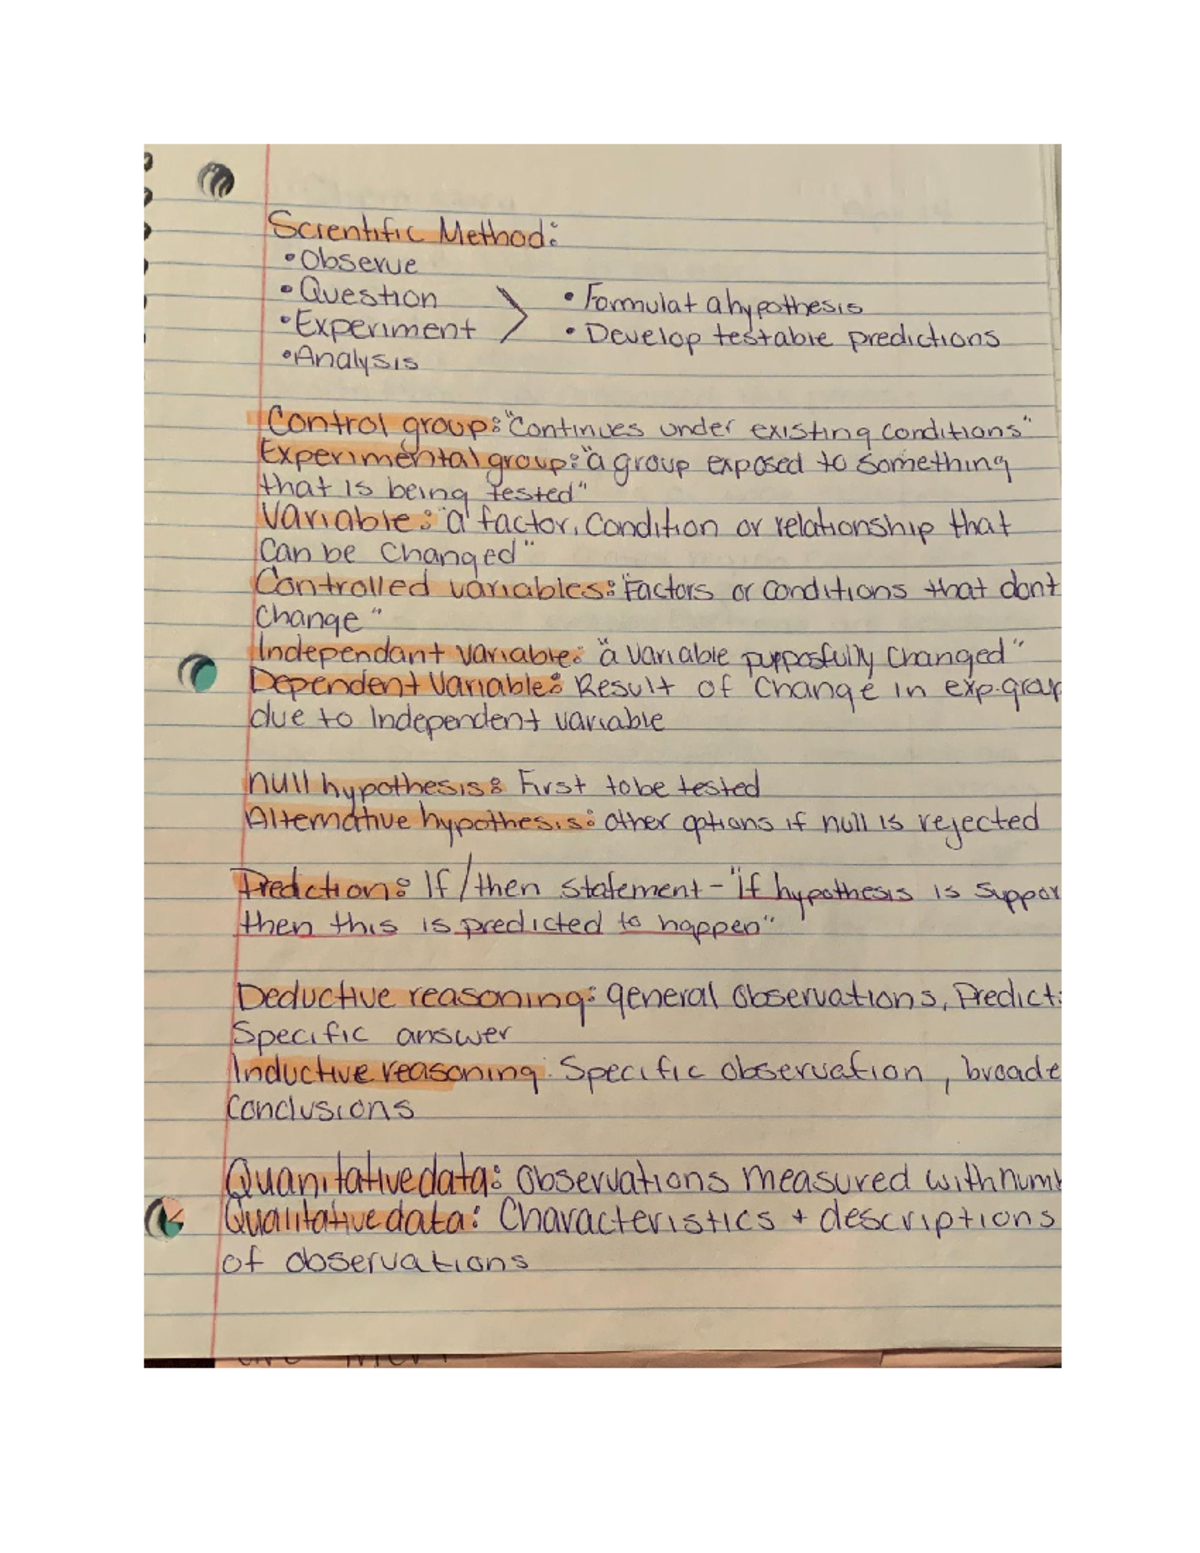 Scientific Method:
• Observe
• Question
• Formulat a hypothesis
• Experiment
• Develop testable predictions
• Analysis
Control group: "Continues under existing conditions"
Experimental group: "a group exposed to something
that is being tested"
Variable: "a factor, Condition or relationship that
can be changed"
Controlled variables: "Factors or conditions that dont
change"
Independant variable: "a variable purposfully changed"
Dependent Variable: Result of change in exp.group
due to Independent variable
null hypothesis: First to be tested
Alternative hypothesis: other options if null is rejected
Prediction: If/then statement - "if hypothesis is suppor
then this is predicted to happen"
Deductive reasoning: general observations, Predict
Specific answer
Inductive reasoning: Specific observation, broade
Conclusions
Quanitative data: Observations measured with numb
Qualitative data: Characteristics + descriptions
of observations